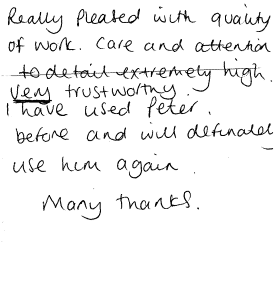 Really Pleased with quality
of work. Care and attention
to detail extremely high.
Very trustworthy.
I have used Peter.
before and will definately
use him again.
Many thanks.